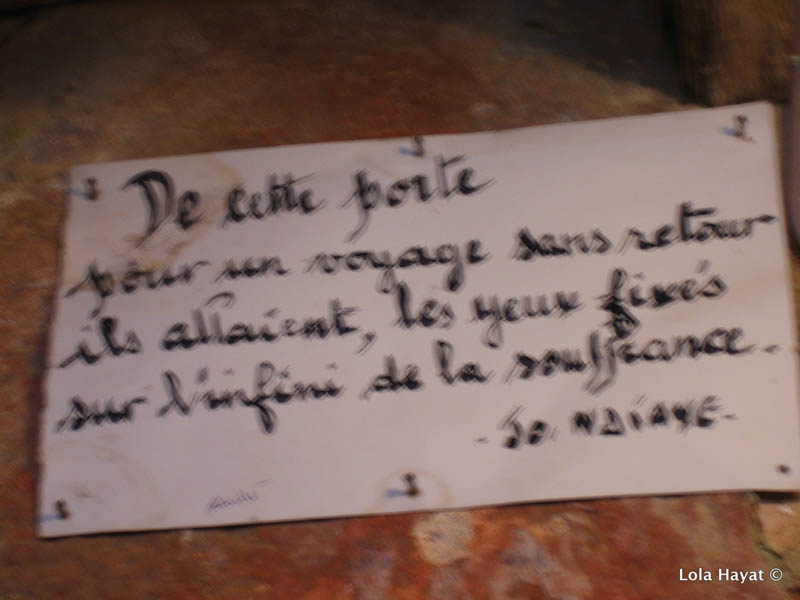 De cette porte
pour un voyage sans retour
ils allaient, les yeux fixés
sur l'infini de la souffrance.
- Jo. NDIAYE -
André
Lola Hayat ©